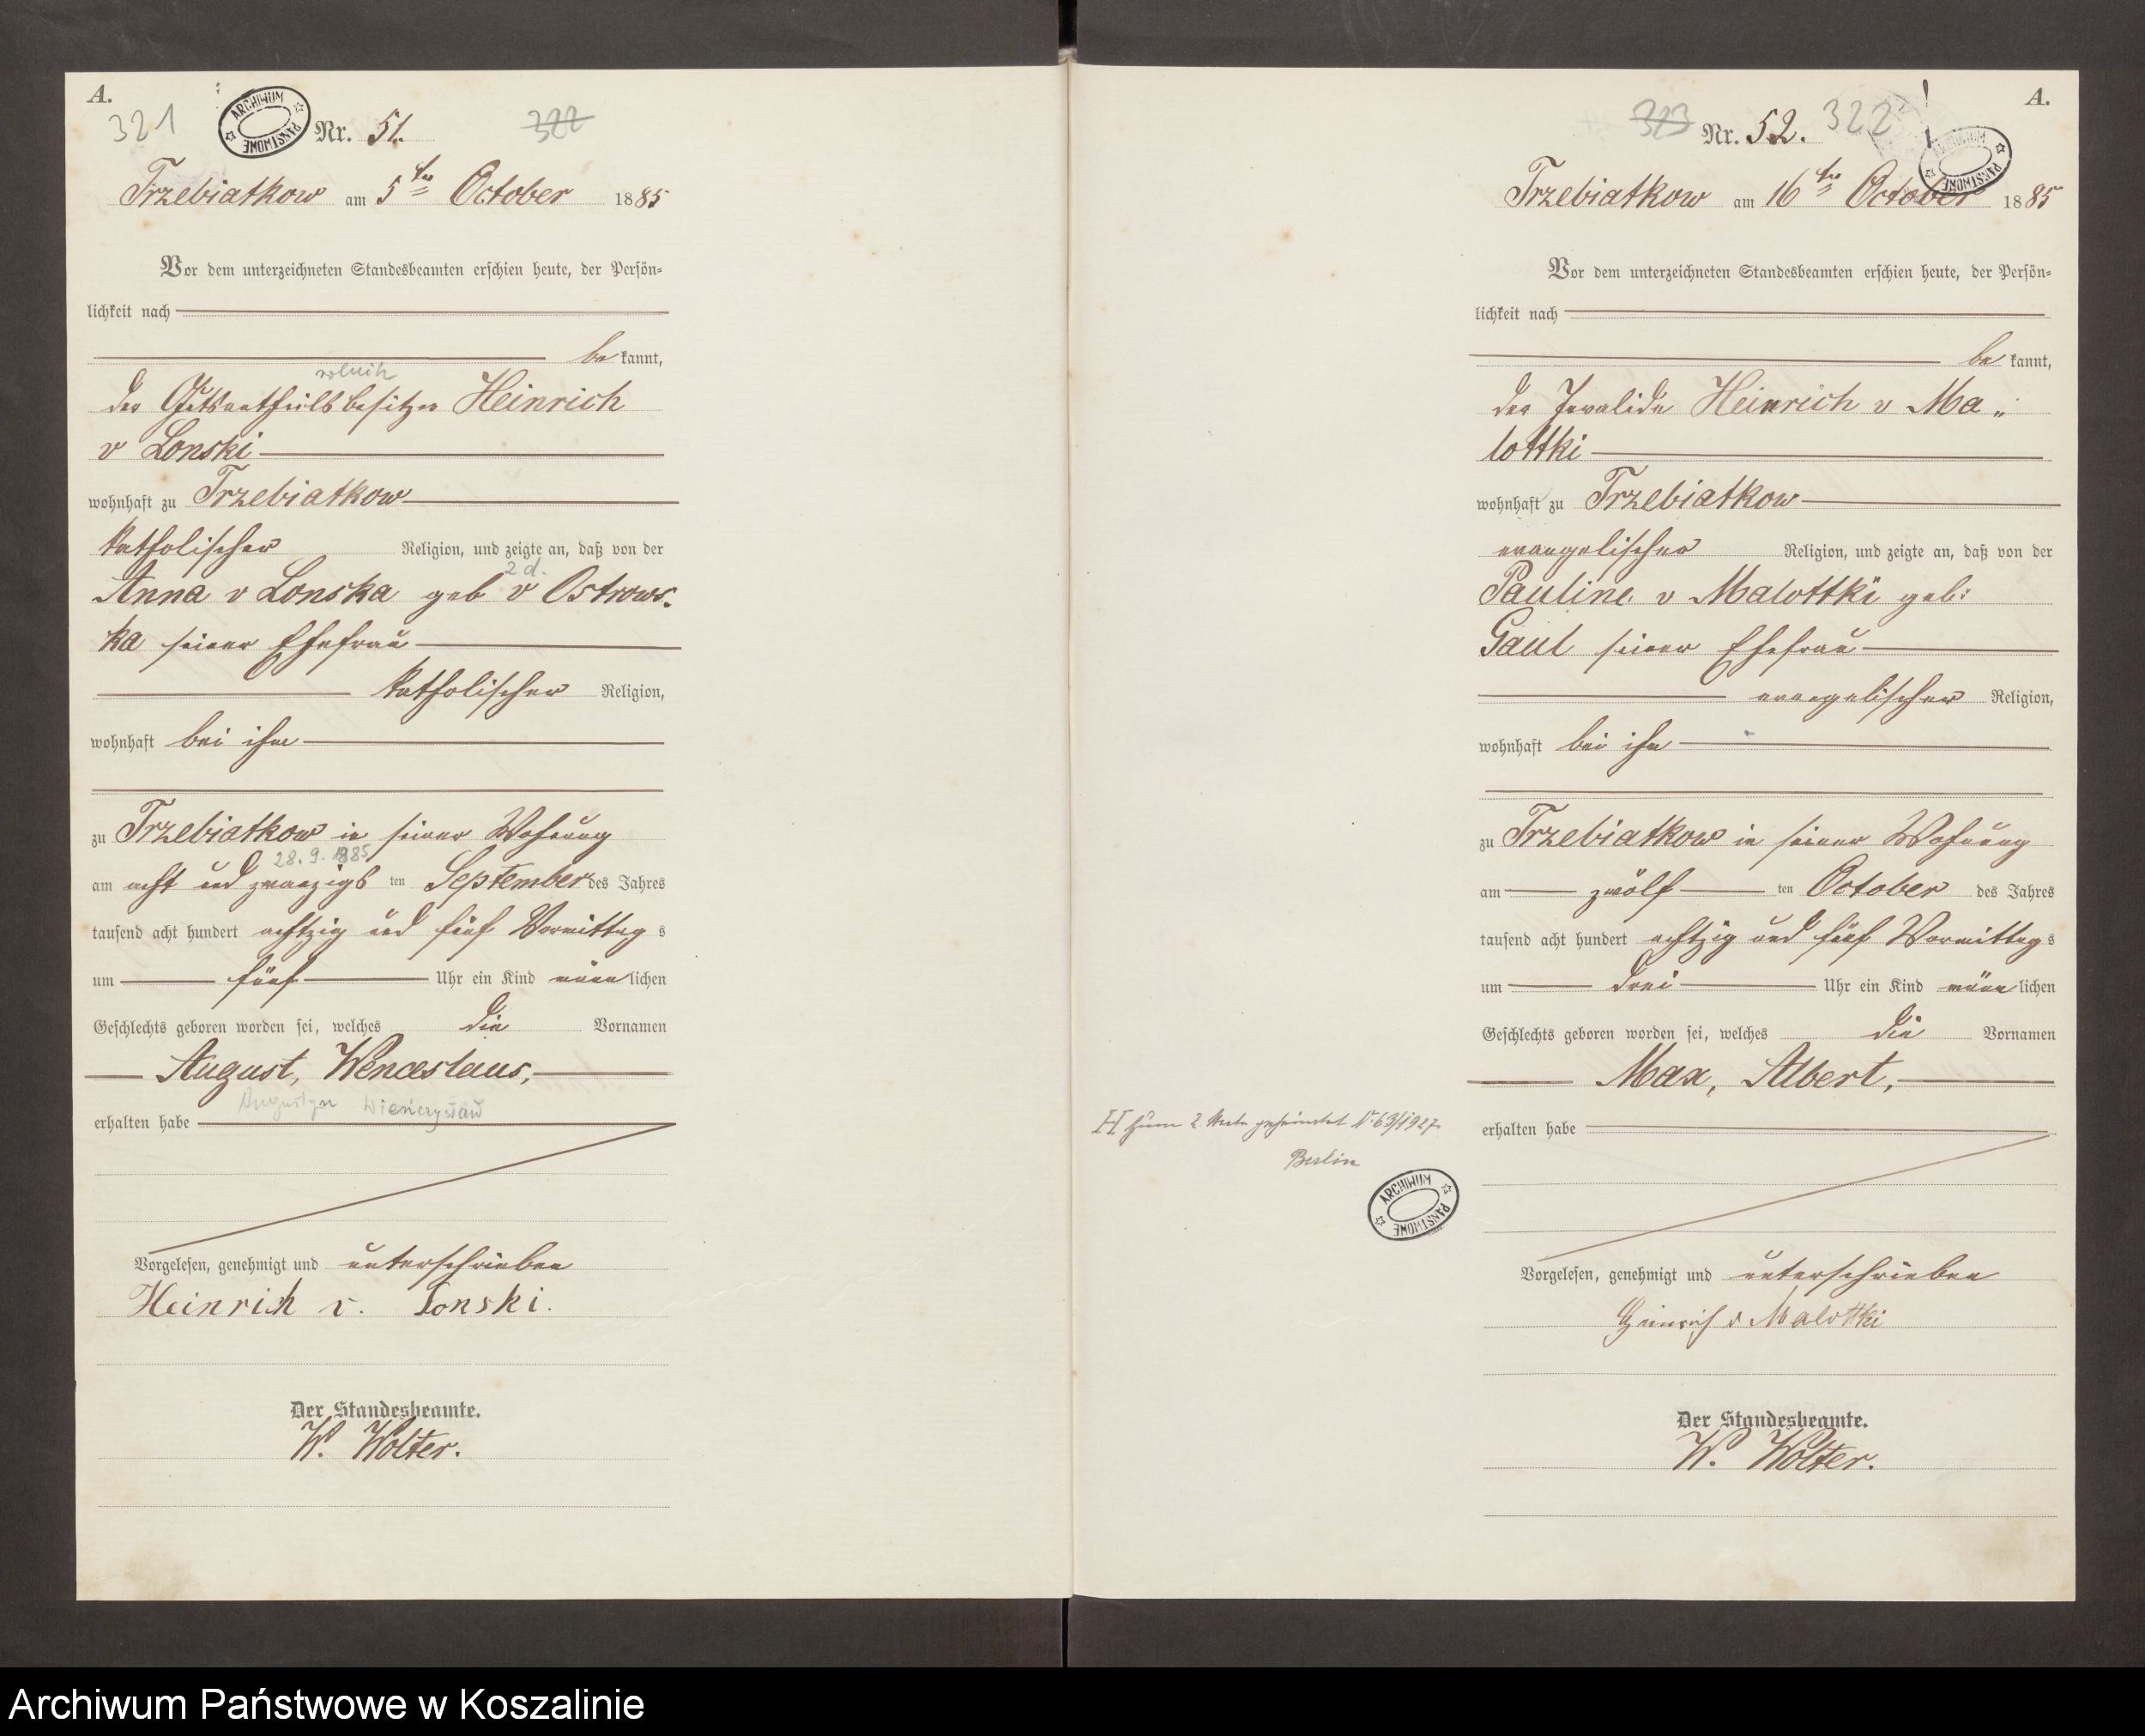 A.
321
ARCHIWUM PAŃSTWOWE
Nr. 51.
322
Trzebiatkow am 5ten October 1885
Vor dem unterzeichneten Standesbeamten erschien heute, der Persön-
lichkeit nach
be kannt,
rolnik
der Gutsantheilsbesitzer Heinrich
v Lonski
wohnhaft zu Trzebiatkow
katholischer Religion, und zeigte an, daß von der
2 d.
Anna v Lonska geb v Ostrows-
ka seiner Ehefrau
katholischer Religion,
wohnhaft bei ihm
zu Trzebiatkow in seiner Wohnung
28.9.1885
am acht und zwanzigs ten September des Jahres
tausend acht hundert achtzig und fünf Vormittag s
um fünf Uhr ein Kind männ lichen
Geschlechts geboren worden sei, welches die Vornamen
August, Wenceslaus,
Augustyn Wieńczysław
erhalten habe
Vorgelesen, genehmigt und unterschrieben
Heinrich v. Lonski.
Der Standesbeamte.
W. Wolter.
A.
323
Nr. 52.
322
ARCHIWUM PAŃSTWOWE
Trzebiatkow am 16ten October 1885
Vor dem unterzeichneten Standesbeamten erschien heute, der Persön-
lichkeit nach
be kannt,
der Invalide Heinrich v Ma-
lottki
wohnhaft zu Trzebiatkow
evangelischer Religion, und zeigte an, daß von der
Pauline v Malottki geb:
Gaul seiner Ehefrau
evangelischer Religion,
wohnhaft bei ihm
zu Trzebiatkow in seiner Wohnung
am zwölf ten October des Jahres
tausend acht hundert achtzig und fünf Vormittag s
um drei Uhr ein Kind männ lichen
Geschlechts geboren worden sei, welches die Vornamen
Max, Albert,
erhalten habe
zum 2. Male geheiratet Nr 63/1927
Berlin
ARCHIWUM PAŃSTWOWE
Vorgelesen, genehmigt und unterschrieben
Heinrich v Malottki
Der Standesbeamte.
W. Wolter.
Archiwum Państwowe w Koszalinie